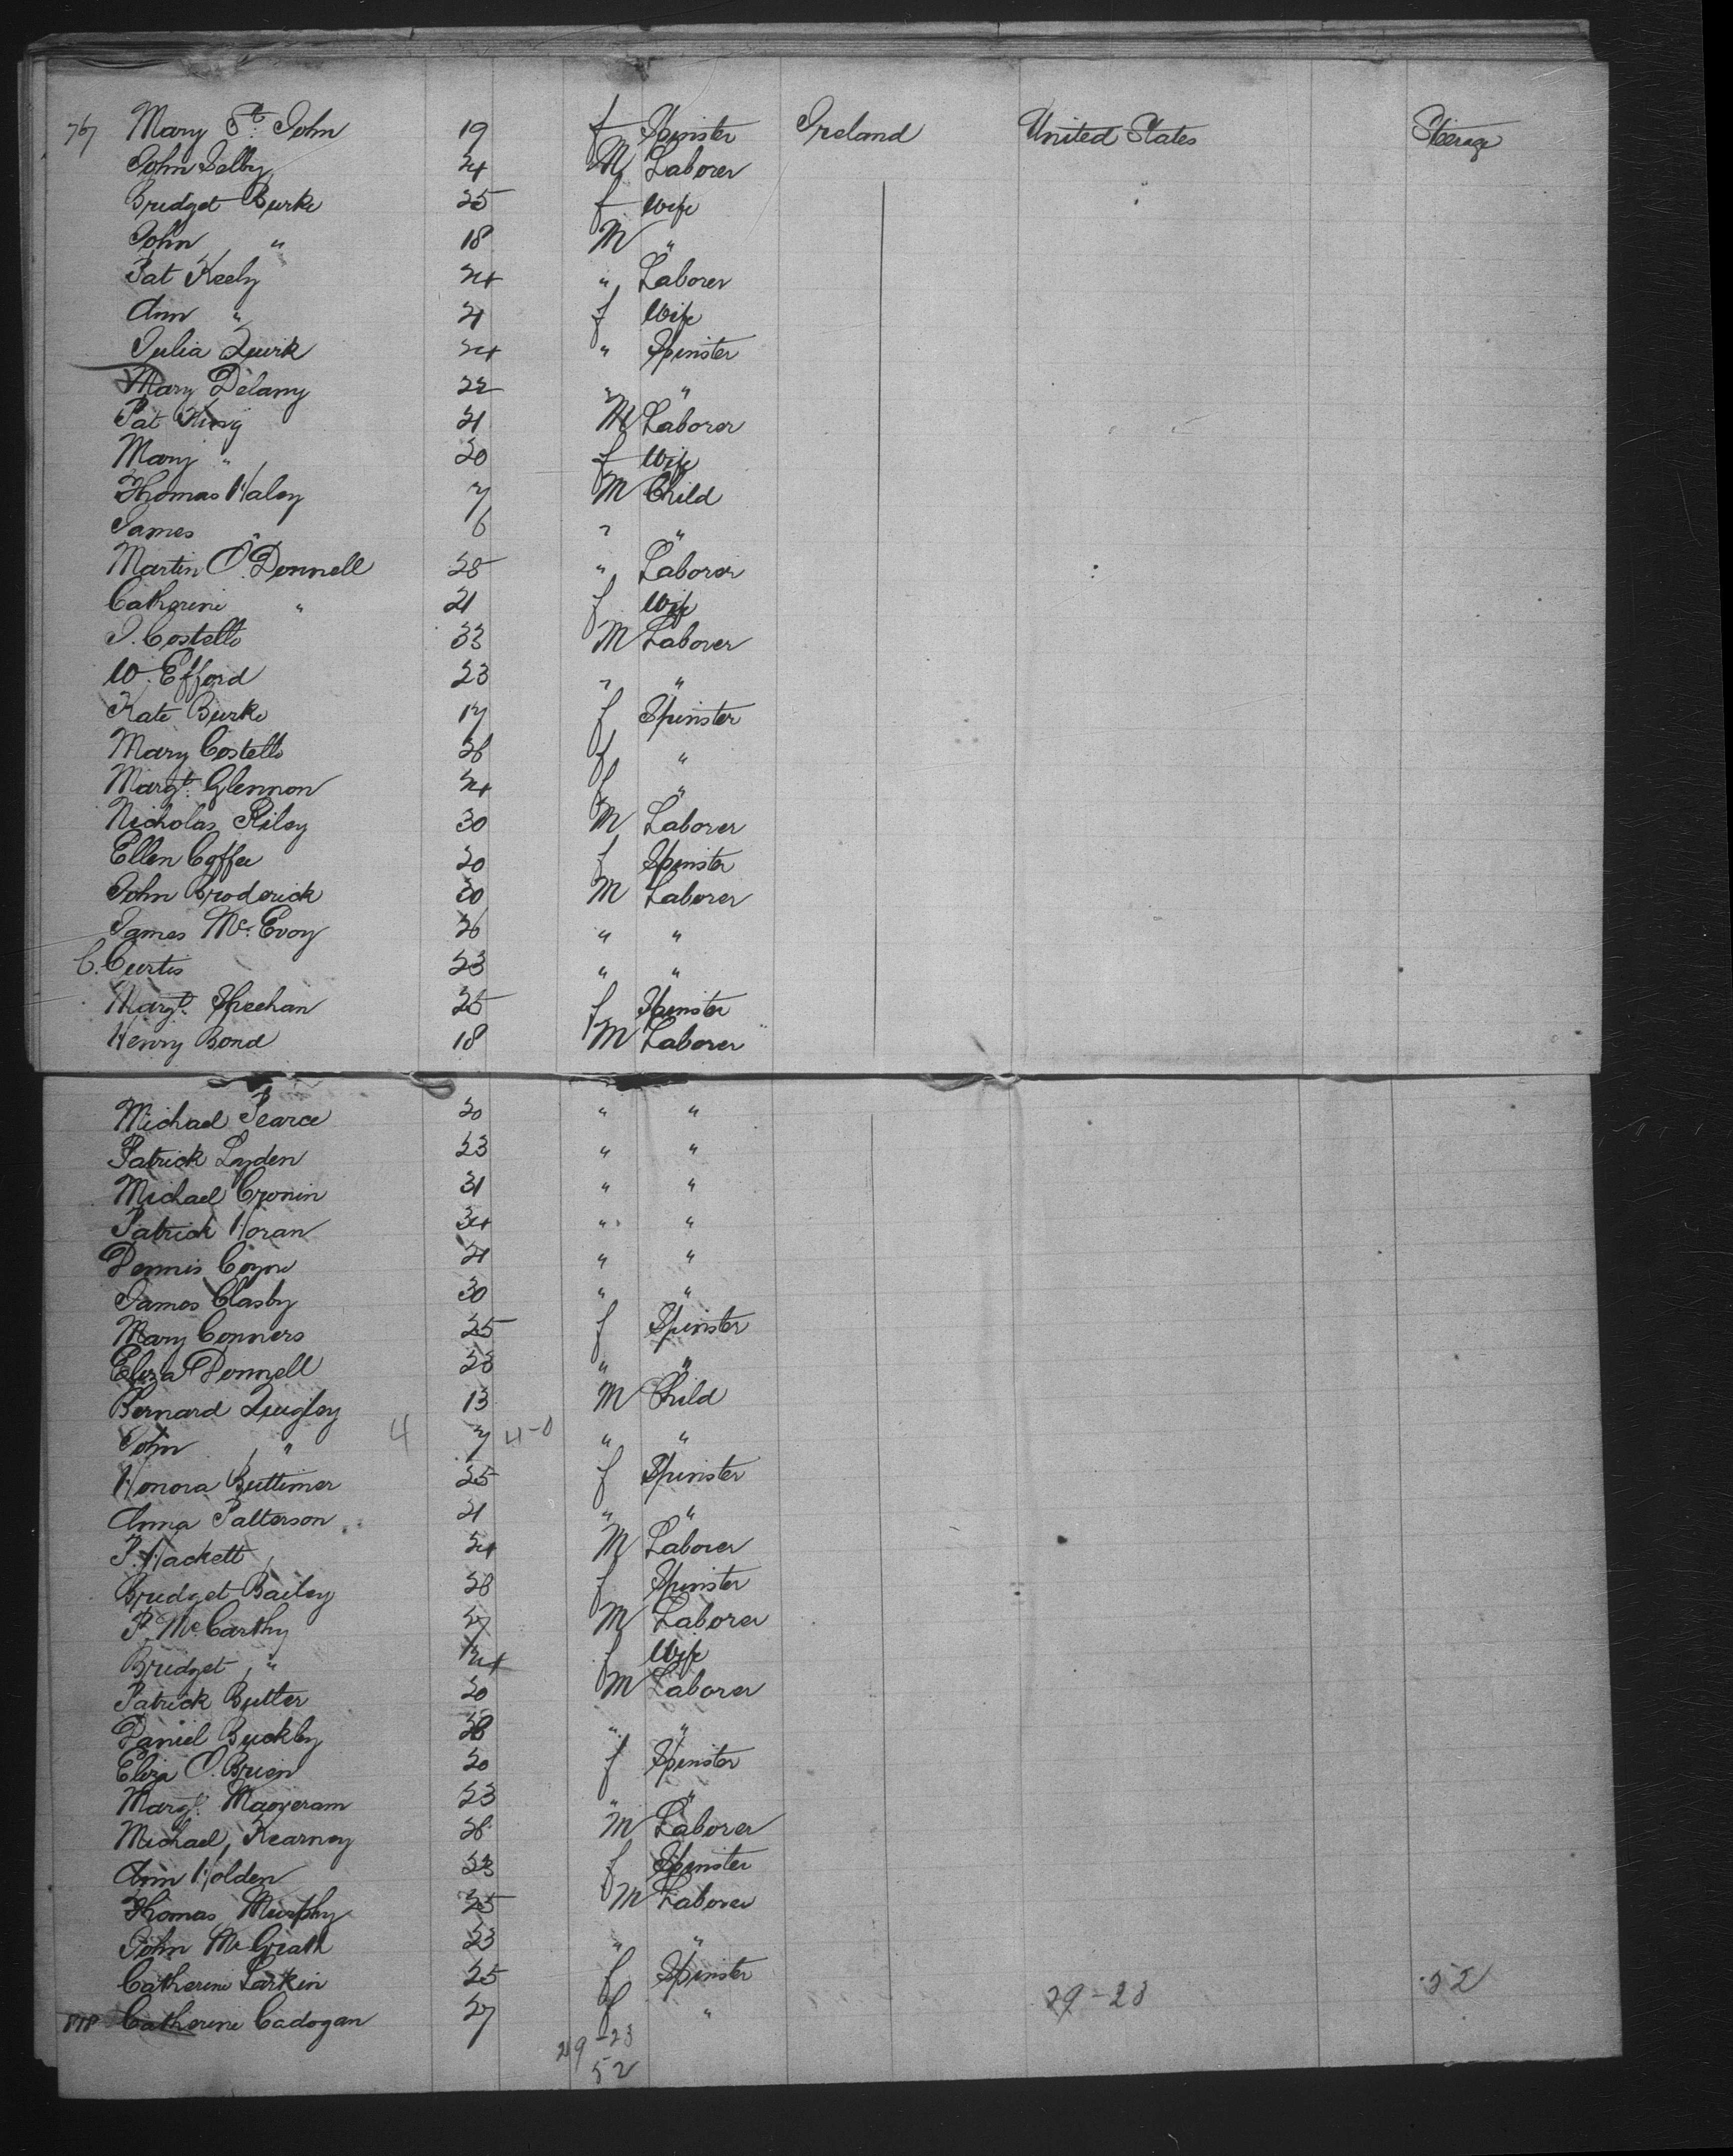 767 Mary St. John 19 f Spinster Ireland United States Steerage
John Selby 24 M Laborer
Bridget Burke 25 f Wife
John " 18 M "
Pat Keely 24 " Laborer
Ann " 21 f Wife
Julia Quirk 24 " Spinster
Mary Delany 22 " "
Pat King 21 M Laborer
Mary " 20 f Wife
Thomas Haley 7 M Child
James " 6 " "
Martin O'Donnell 25 " Laborer
Catherine " 21 f Wife
J. Costello 33 M Laborer
W. Efford 23 " "
Kate Burke 17 f Spinster
Mary Costello 26 f "
Margt. Glennon 24 f "
Nicholas Riley 30 M Laborer
Ellen Coffee 20 f Spinster
John Broderick 20 M Laborer
James McEvoy 26 " "
C. Curtis 23 " "
Margt. Sheehan 25 f Spinster
Henry Bond 18 M Laborer
Michael Pearce 20 " "
Patrick Lyden 23 " "
Michael Cronin 31 " "
Patrick Horan 34 " "
Dennis Coyne 21 " "
James Clasby 30 " "
Mary Conners 25 f Spinster
Eliza Donnell 23 " "
Bernard Quigley 13 M Child
John " 4 7 4-0 " "
Honora Buttimer 25 f Spinster
Anna Patterson 21 " "
P. Hackett 24 M Laborer
Bridget Bailey 28 f Spinster
P. McCarthy 27 M Laborer
Bridget " 24 f Wife
Patrick Butler 20 M Laborer
Daniel Buckley 28 " "
Eliza O.Brien 20 f Spinster
Margt. Magveram 23 " "
Michael Kearney 26 M Laborer
Ann Holden 23 f Spinster
Thomas Murphy 25 M Laborer
John McGrath 23 " "
Catherine Larkin 25 f Spinster 29-23 52
818 Catherine Cadogan 27 f "
29-23
52